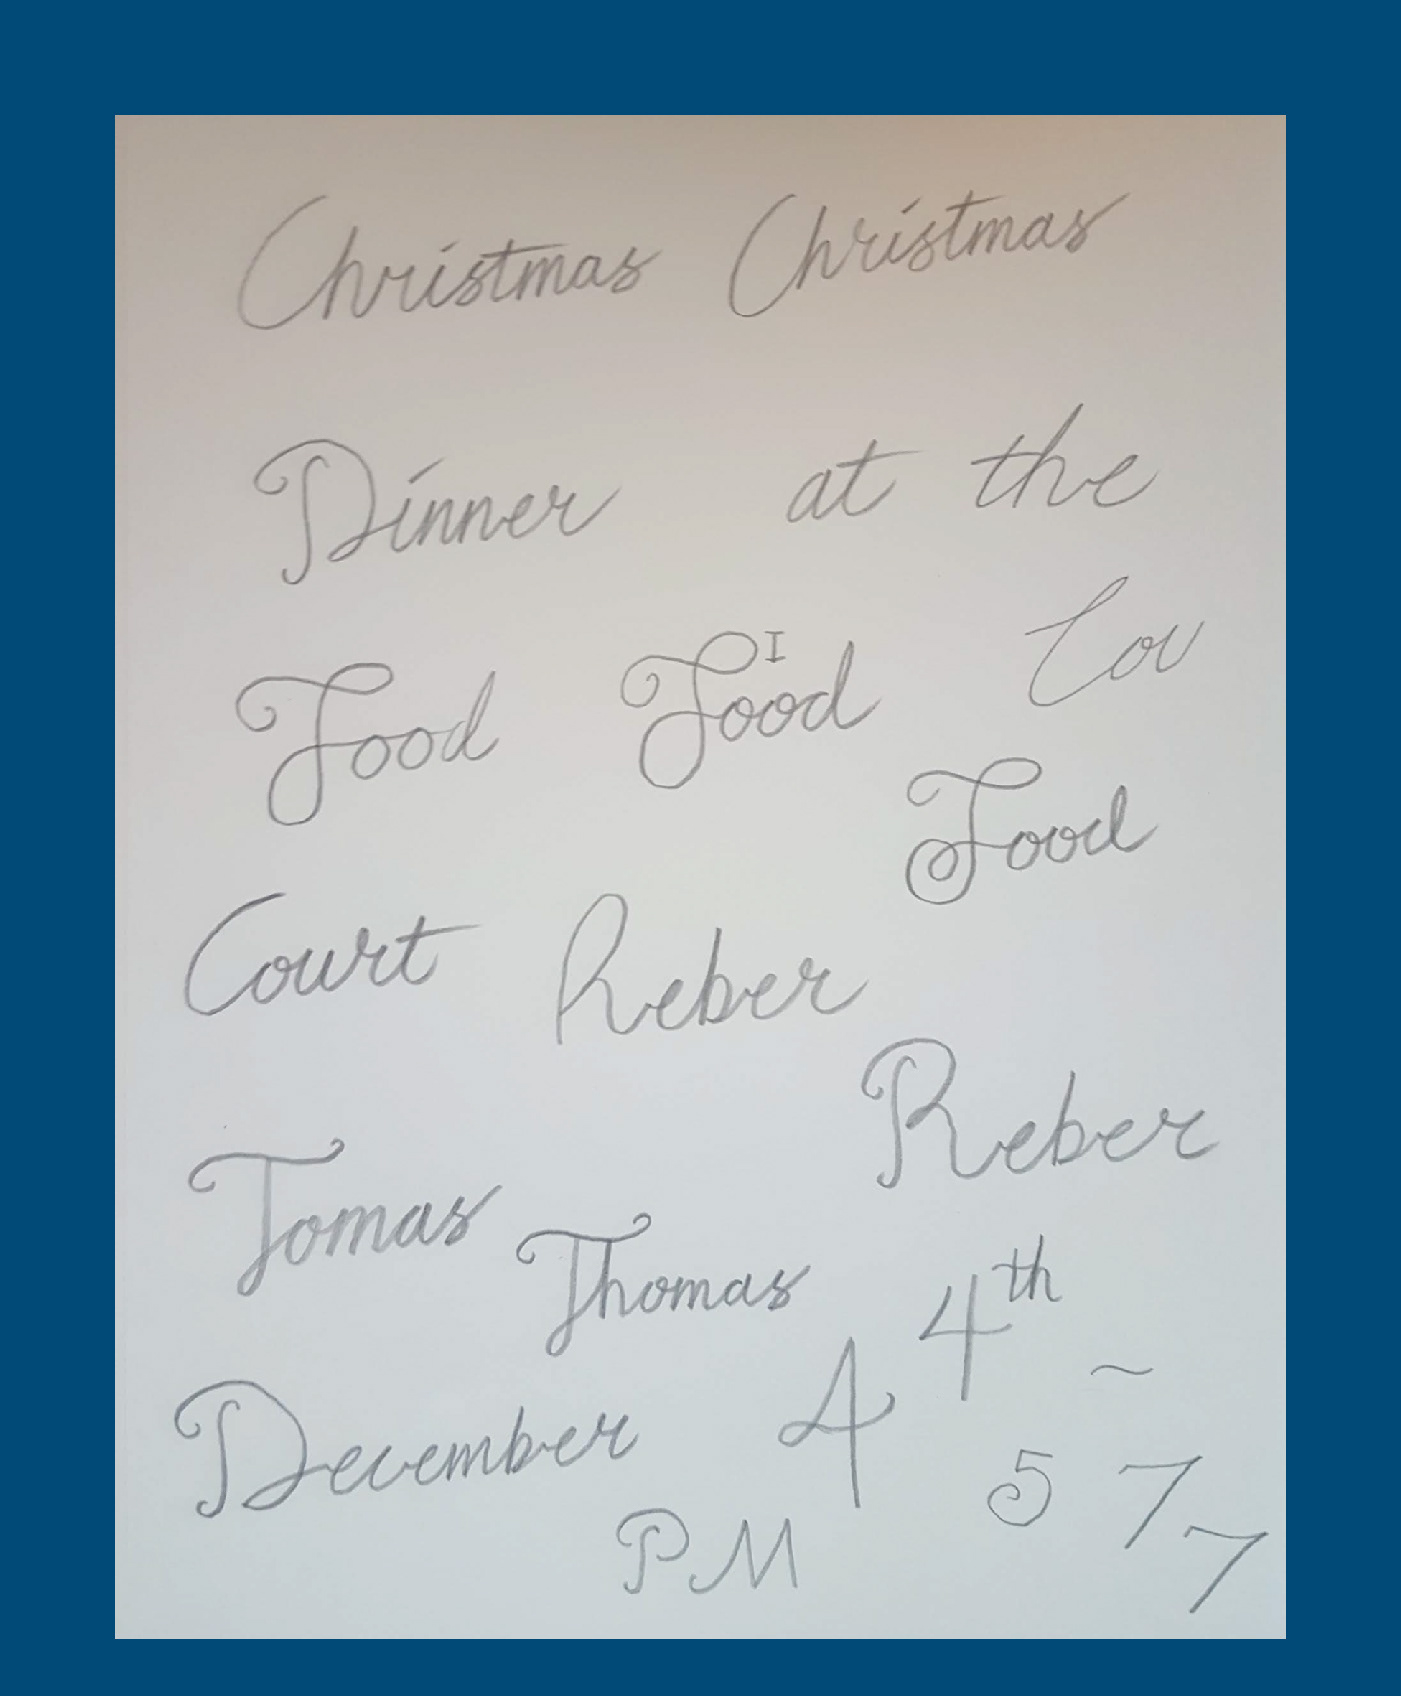 Christmas Christmas
Dinner at the
Food Food I Cou
Food
Court Reber
Reber
Tomas
Thomas 4th
December 4 ~
5 7
PM 7